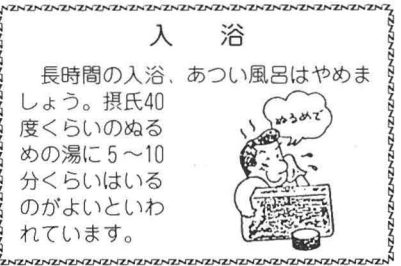 入 浴
長時間の入浴、あつい風呂はやめま
しょう。摂氏40
度くらいのぬる
めの湯に5〜10
分くらいはいる
のがよいといわ
れています。
ぬるめで